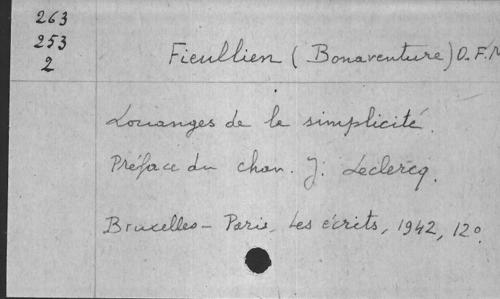 263
253
2
Fieullien (Bonaventure) O.F.M
Louanges de la simplicité.
Préface du chan. J. Leclercq.
Bruxelles - Paris, Les écrits, 1942, 12º.